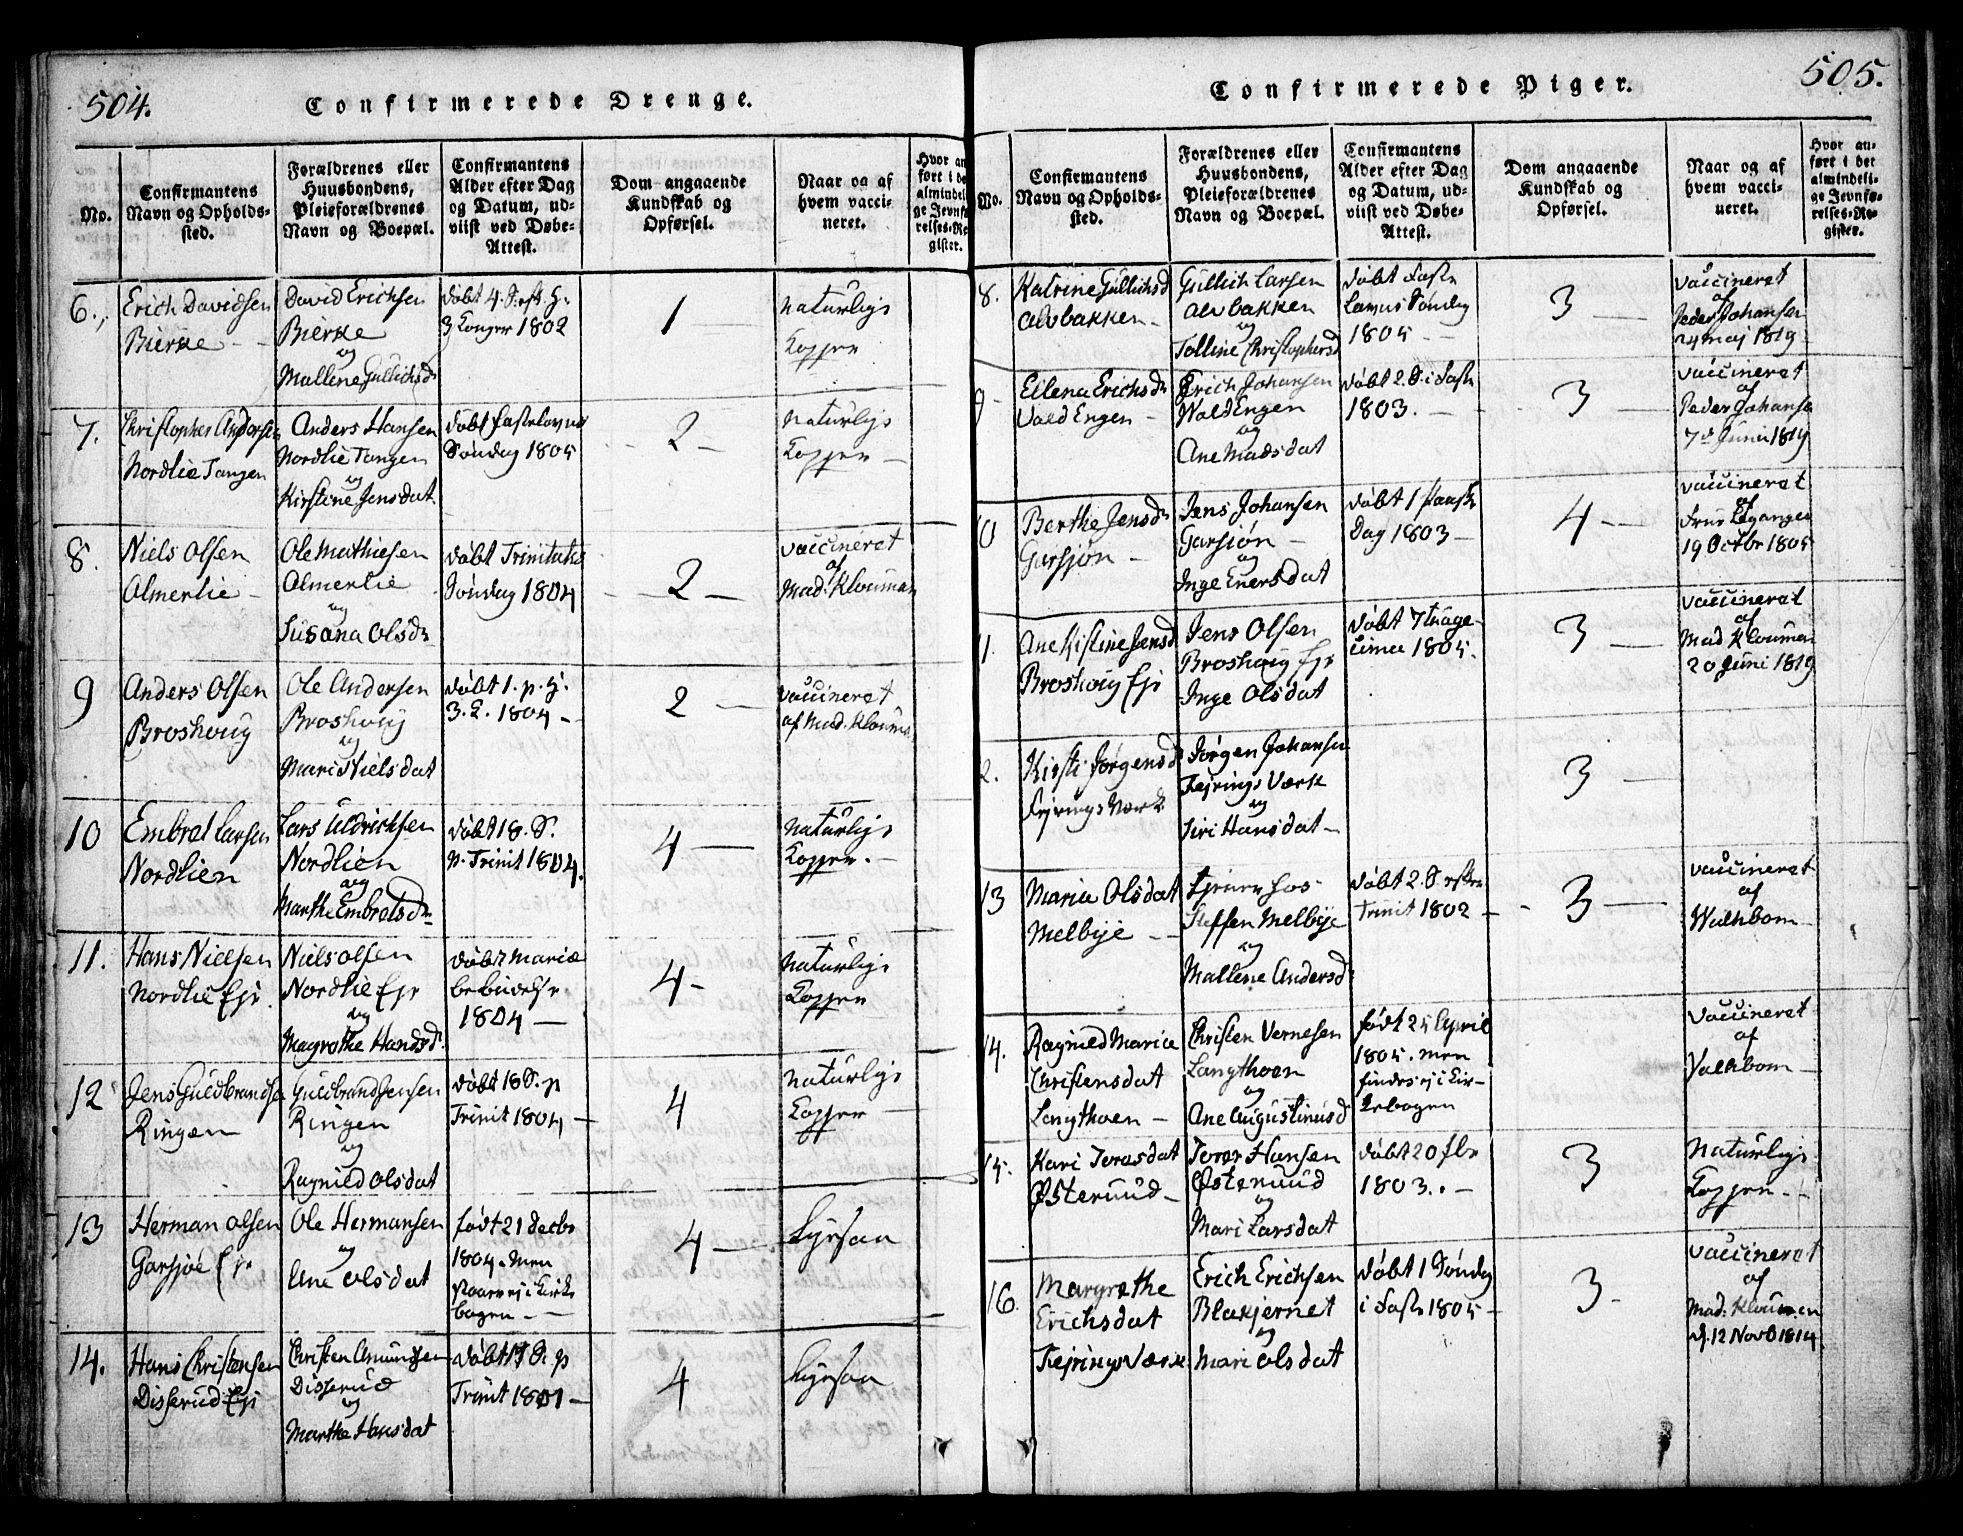 504.
Confirmerede Drenge.
No.
Confirmantens
Navn og Opholds-
sted.
Forældrenes eller
Huusbondens,
Pleieforældrenes
Navn og Boepæl.
Confirmantens
Alder efter Dag
og Datum, ud-
vlist ved Døbe-
Attest.
Dom angaaende
Kundskab og
Opførsel.
Naar og af
hvem vacci-
neret.
Hvor an
ført i de
almindel
ge Jevnf
relses-Re
gister.
6.
Erich Davidsen
Bierke
David Erichsen
Bierke
og
Mallene Gullichsd
døbt 4. S. eft. H.
3 Konger 1802
1
Naturlige
Kopper
7.
Christopher Andersen
Nordlie Tangen
Anders Hansen
Nordlie Tangen
og
Kirstine Jensdat
døbt Fastelavns
Søndag 1805
2
Naturlige
Kopper
8.
Niels Olsen
Almerlie
Ole Mathiesen
Almerlie
og
Susana Olsdr
døbt Trinitatis
Søndag 1804
2
vaccineret
af
Mad: Klouman
9
Anders Olsen
Broshoug
Ole Andersen
Broshoug
og
Mari Nielsdat
døbt 1. p. H.
3. K. 1804
2
vaccineret
af Mad. Klouma
10
Embret Larsen
Nordlien
Lars Uldrichsen
Nordlien
og
Marthe Embretsdr
døbt 18. S.
p. Trinit 1804.
4
Naturlige
Kopper.
11.
Hans Nielsen
Nordlie Ejr
Niels Olsen
Nordlie Ejr
og
Magrethe Hansd.
døbt Mariæ
bebudelse
1804
4
Naturlige
Kopper
12
Jens Guldbrandse
Ringen
Guldbrand Jensen
Ringen
og
Ragnild Olsdat
døbt 18 S. p
Trinit 1804
4
Naturlige
Kopper
13
Herman Olsen
Garsjøe Ejr
Ole Hermansen
og
Ane Olsdat
født 21 Decbr
1804. Men
staar ej i Kirke
bogen
4
14.
Hans Christensen
Disserud Ejr
Christen Amundsen
Disserud
og
Marthe Hansdat
døbt 17 S. p
Trinit 1801
4
505.
Confirmerede Piger.
No.
Confirmantens
Navn og Opholds-
sted.
Forældrenes eller
Huusbondens,
Pleieforældrenes
Navn og Boepæl.
Confirmantens
Alder efter Dag
og Datum, ud-
vlist ved Døbe-
Attest.
Dom angaaende
Kundskab og
Opførsel.
Naar og af
hvem vacci-
neret.
Hvor an-
ført i det
almindeli-
ge Jevnfø-
relses-Re-
gister.
8.
Katrine Gullichsd
Alvbakken
Gullich Larsen
Alvbakken
og
Tolline Christophersd
døbt Faste
Lavns Søndag
1805
3
vaccineret
af
Peder Johansen
24 Maj 1819
9
Ellena Erichsdr
Vold Engen
Erich Johansen
Wold Engen
og
Ane Madsdat
døbt 2. S. i Faste
1803.
3
vaccineret
af
Peder Johanse
7de Junii 1819
10
Berthe Jensdr
Garsjøn
Jens Johansen
Garsjøn
og
Inge Enersdat
døbt 1 Paaske
Dag 1803
4
vaccineret
af
Frue
19 Octbr 1805
11.
Ane Kistine Jensd
Broshoug Ejr
Jens Olsen
Broshoug Ejr
Inge Olsdat
døbt 7tuage-
sima 1805.
3
vaccineret
af
Mad Klouman
20 Juni 1819
2.
Kirsti Jørgensd
Fejrings Værk
Jørgen Johansen
Fejrings Værk
og
Siri Hansdat
3
13
Maria Olsdat
Melbye
tjener hos
Steffen Melbye
og
Mallene Andersd
døbt 2. S efter
Trinit 1802
3
vaccineret
af
Walkbom
14.
Ragnild Maria
Christensdat
Langthoen
Christen Vernesen
Langthoen
og
Ane Augustinusd
født 25 April
1805. men
findes ej i Kir-
kebogen
vaccineret
af
Valkbom
15.
Kari Torersdat
Østeruud
Torer Hansen
Østeruud
og
Mari Larsdat
døbt 20 Fbr
1803.
3
Naturlige
Kopper
16.
Margrethe
Erichsdat
Fejrings Værk
Erich Erichsen
Blakjernet
og
Mari Olsdat
døbt 1 Søndag
i Faste 1805
3
vaccineret
af
Mad: Klouman
d. 12 Novb 1814